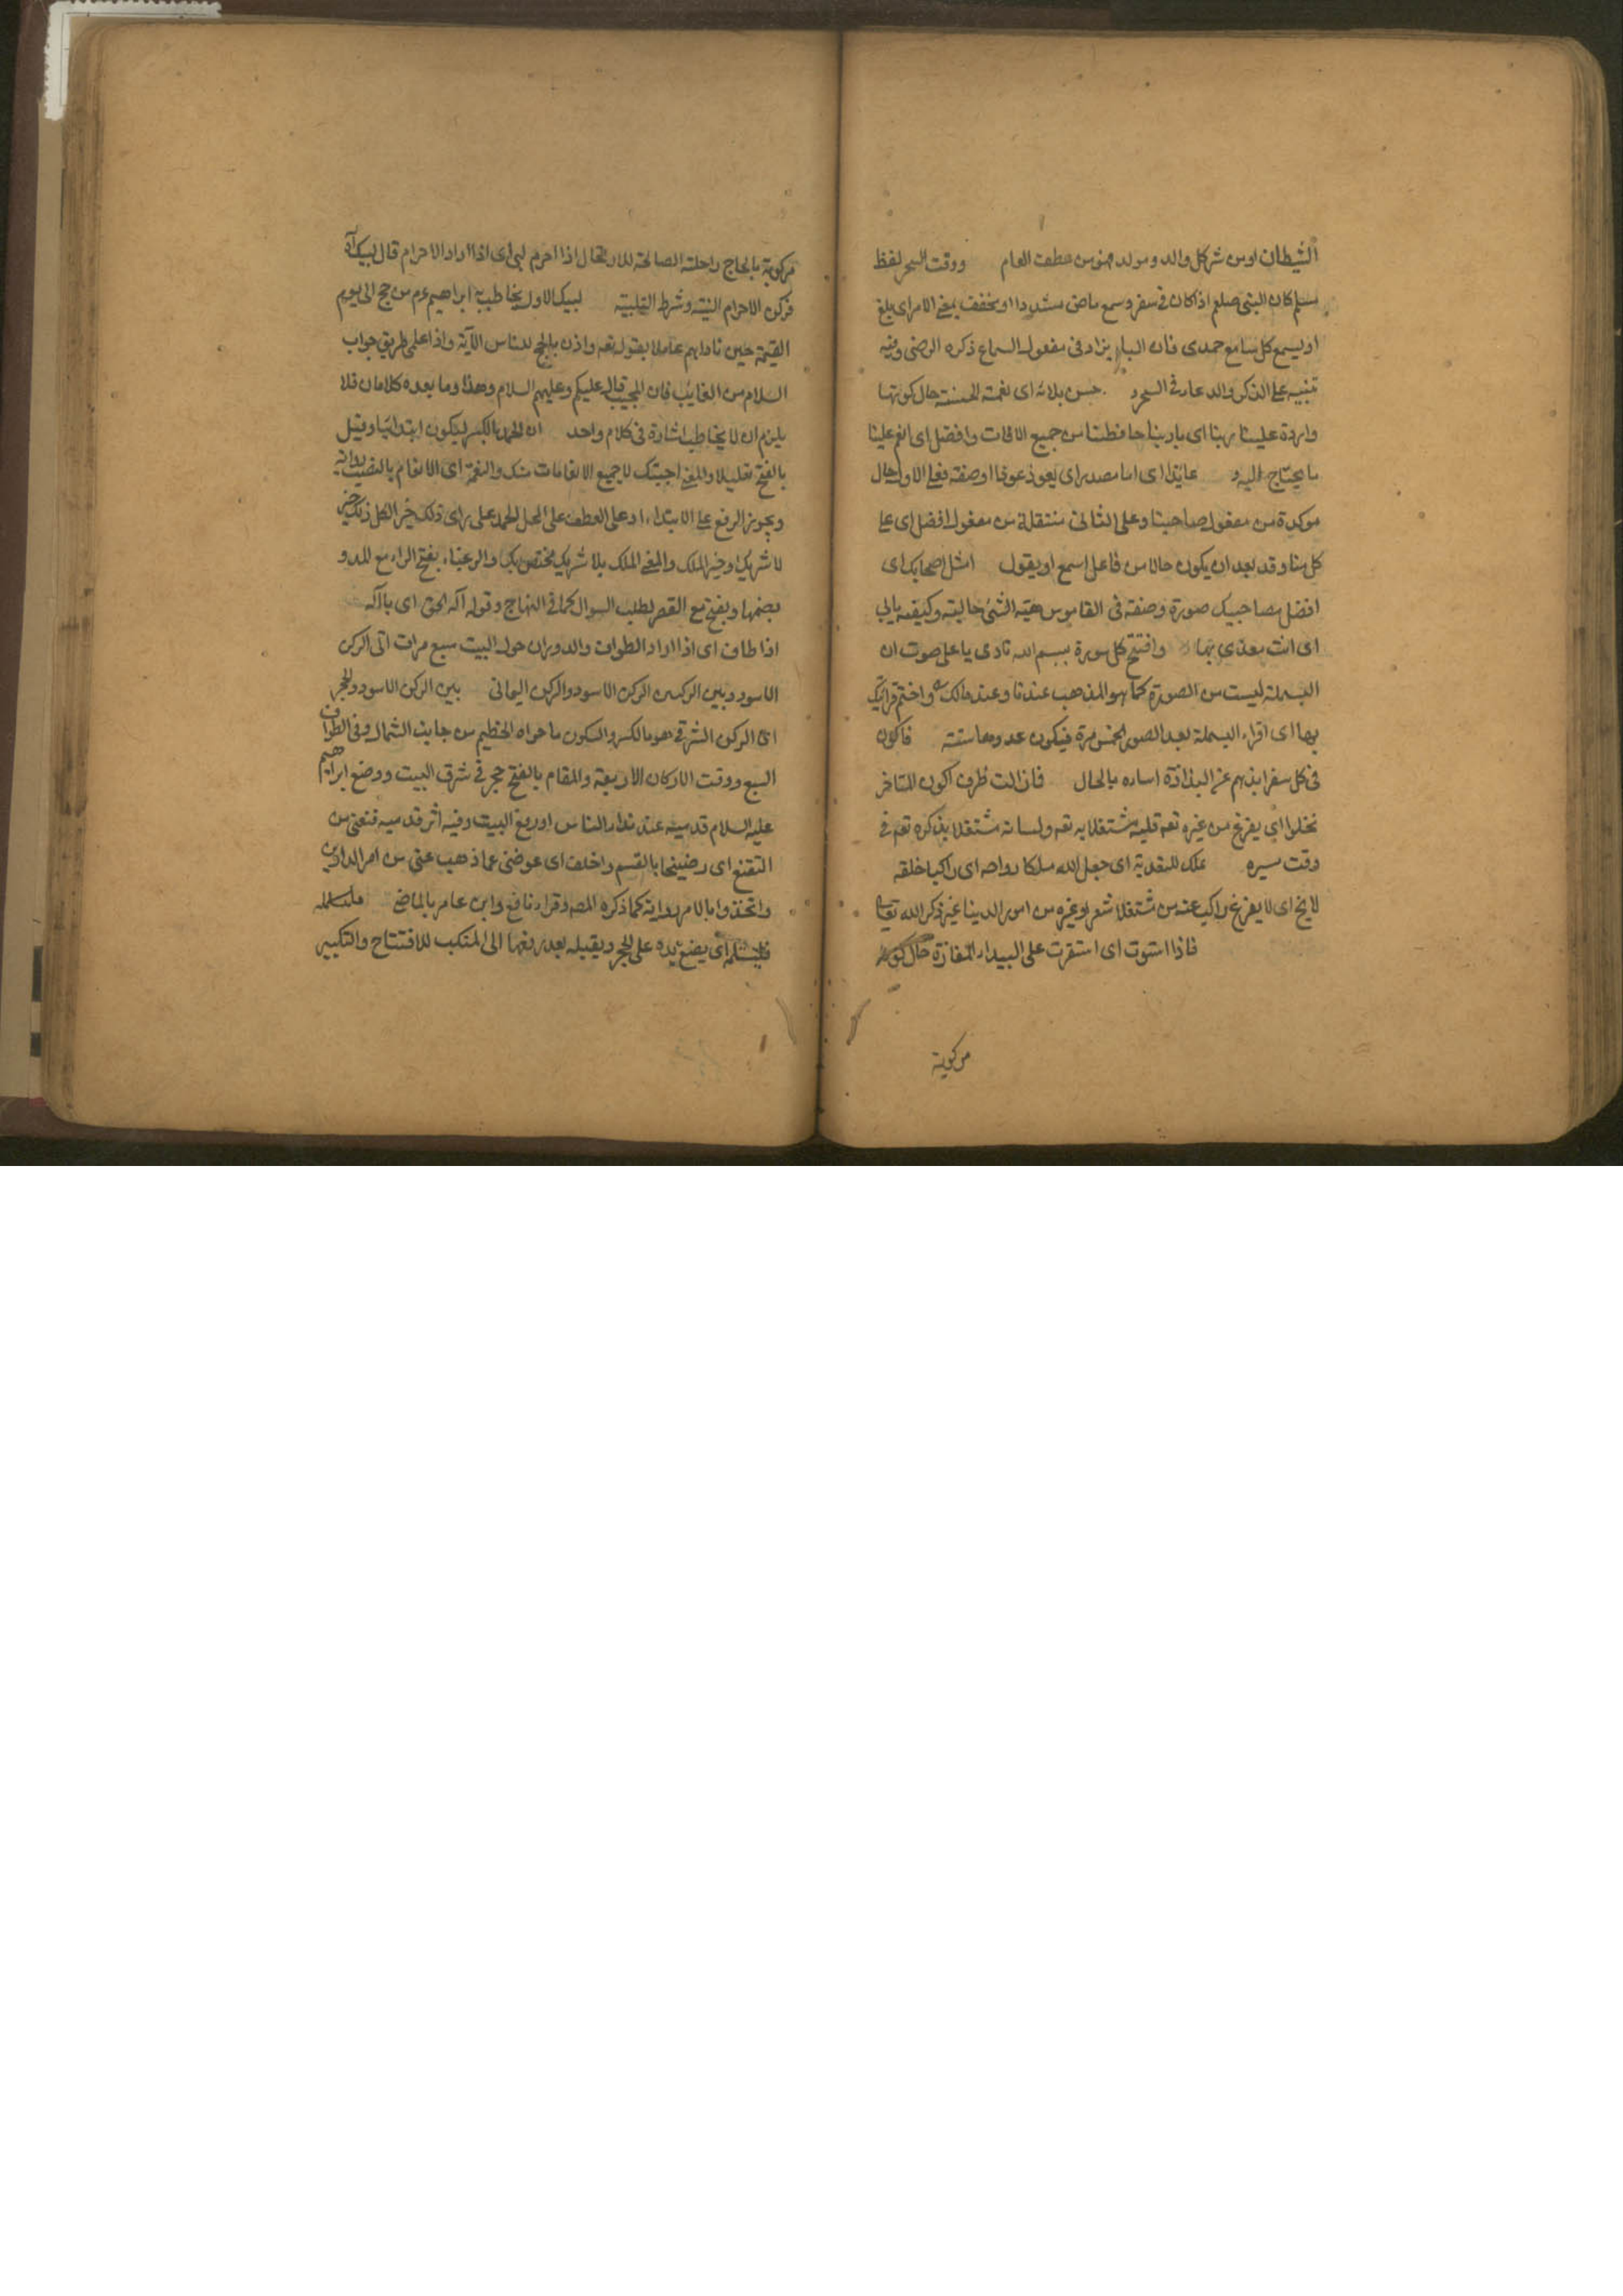 الشيطان او من شر كل والد و مولد فهو من عطف العام ووقت السحر لفظ
مسلم كان النبي صلعم اذا كان في سفر وسمع ماض مشددا او مخفف بمعني الامر اي بلغ
او ليسمع كل سامع حمدي فان الباء يزاد في مفعول السماع ذكره الرضي وفيه
تنبيه علي الذكر والدعاء في السحر حسن بلائه اي نعمته الحسنة حال كونها
واردة علينا ربنا اي يا ربنا حافظنا من جميع الافات وافضل اي انعم علينا
ما يحتاج اليه عايذا اي اما مصدر اي يعوذ عوذا او صفة فعلي الاول حال
موكدة من مفعول صاحبنا وعلي الثاني منتقلة من مفعول افضل اي علي
كل منا وقد بعد ان يكون حالا من فاعل اسمع او يقول امثل اصحابك اي
افضل مصاحبيك صورة وصفة في القاموس هيئة الشئ حاليته وكيفيته بابي
اي انت بعدي بها وافتتح كل سورة ببسم الله نادي باعلي صوت ان
البسملة ليست من الصورة كما هو المذهب عندنا وعند مالك واختم قرائتك
بها اي اقراء البسملة بعد الصور الخمس مرة فيكون عددها ستة فاكون
في كل سفر ابذهم عن البذاذة اساره بالحال فازالت ظرف اكون المتاخر
يخلوا اي يفرغ من غيره تعه قلبه مشتغلا به تعه ولسانه مشتغلا بذكره تعه في
وقت سيره ملك للتعدية اي جعل الله ملكا رواصه اي راكبا خلفه
لايخ اي لا يفرغ راكب عنه من مشتغلا شعر او غيره من امور الدينا غير ذكر الله تعالي
فاذا استوت اي استقرت علي البيداء المفازة حال كونه
مركوبة
مركوبة بالحاج راحلته الصالحة للارتحال اذا احرم لبي اي اذا اراد الاحرام قال لبيك آه
فركن الاحرام النية وشرط التلبية لبيك الاول يخاطب به ابراهيم عم من حج الي يوم
القيمة حين ناداهم عاملا بقوله تعه واذن بالحج للناس الآية واذا علي طريق جواب
السلام من الغائب فان المجيب قال عليكم وعليهم السلام وهذا وما بعده كلامان فلا
يلزم ان لا يخاطب اشارة في كلام واحد ان الحمد بالكسر ليكون ابتدائيا وقيل
بالفتح تعليلا والمعني اجبتك لا جميع الانعامات منك والنعمة اي الانعام بالنصب
ويجوز الرفع علي الابتداء او علي العطف علي المحل الحمد علي راي
لا شريك او خبر الملك والمعني الملك بلا شريك مختص بك والرغباء بفتح الراء مع المد و
بضمها وبفتح مع القصر لطلب السوال كما في النهاج وقوله آله الحق اي يا آله
اذا طاف اي اذا اراد الطواف والدوران حول البيت سبع مرات اتي الركن
الاسود وبين الركنين الركن الاسود والركن اليماني بين الركن الاسود والحجر
اي الركن الشرقي هو بالكسر والسكون ما حواه الحطيم من جانب الشمال وفي الطواف
السبع ووقت الاركان الاربعة والمقام بالفتح حجر في شرق البيت ووضع ابراهيم
عليه السلام قدميه عند نداء الناس او رفع البيت وفيه اثر قدميه قنعني من
التقنع اي رضيني بالقسم واخلف اي عوضني عما ذهب عني من امر الدارين
واتخذوا بالامر رواية كما ذكره المصه وقراء نافع وابن عامر بالماضي
فليستلمه اي يضع يده علي الحجر ويقبله بعد رفعها الي المنكب للافتتاح والتكبير